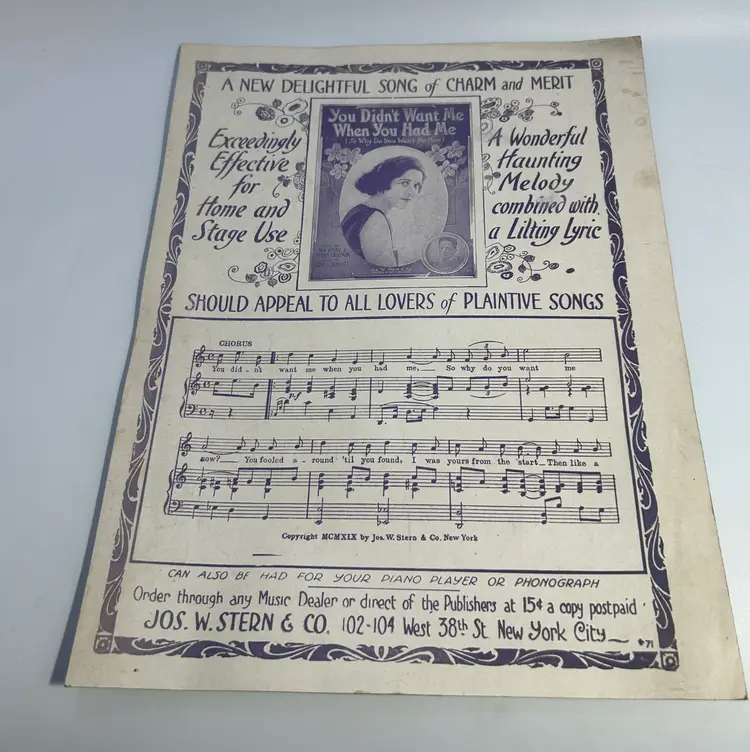 A NEW DELIGHTFUL SONG of CHARM and MERIT
Exceedingly
Effective
for
Home and
Stage Use
You Didn't Want Me
When You Had Me
(So Why Do You Want Me Now)
A Wonderful
Haunting
Melody
combined with
a Lilting Lyric
SHOULD APPEAL TO ALL LOVERS of PLAINTIVE SONGS
CHORUS
You did - n't want me when you had me, So why do you want me
p-f
3
3
now? You fooled a - round 'til you found, I was yours from the start Then like a
Copyright MCMXIX by Jos. W. Stern & Co. New York
CAN ALSO BE HAD FOR YOUR PIANO PLAYER OR PHONOGRAPH
Order through any Music Dealer or direct of the Publishers at 15¢ a copy postpaid
JOS. W. STERN & CO. 102-104 West 38th St. New York City
71